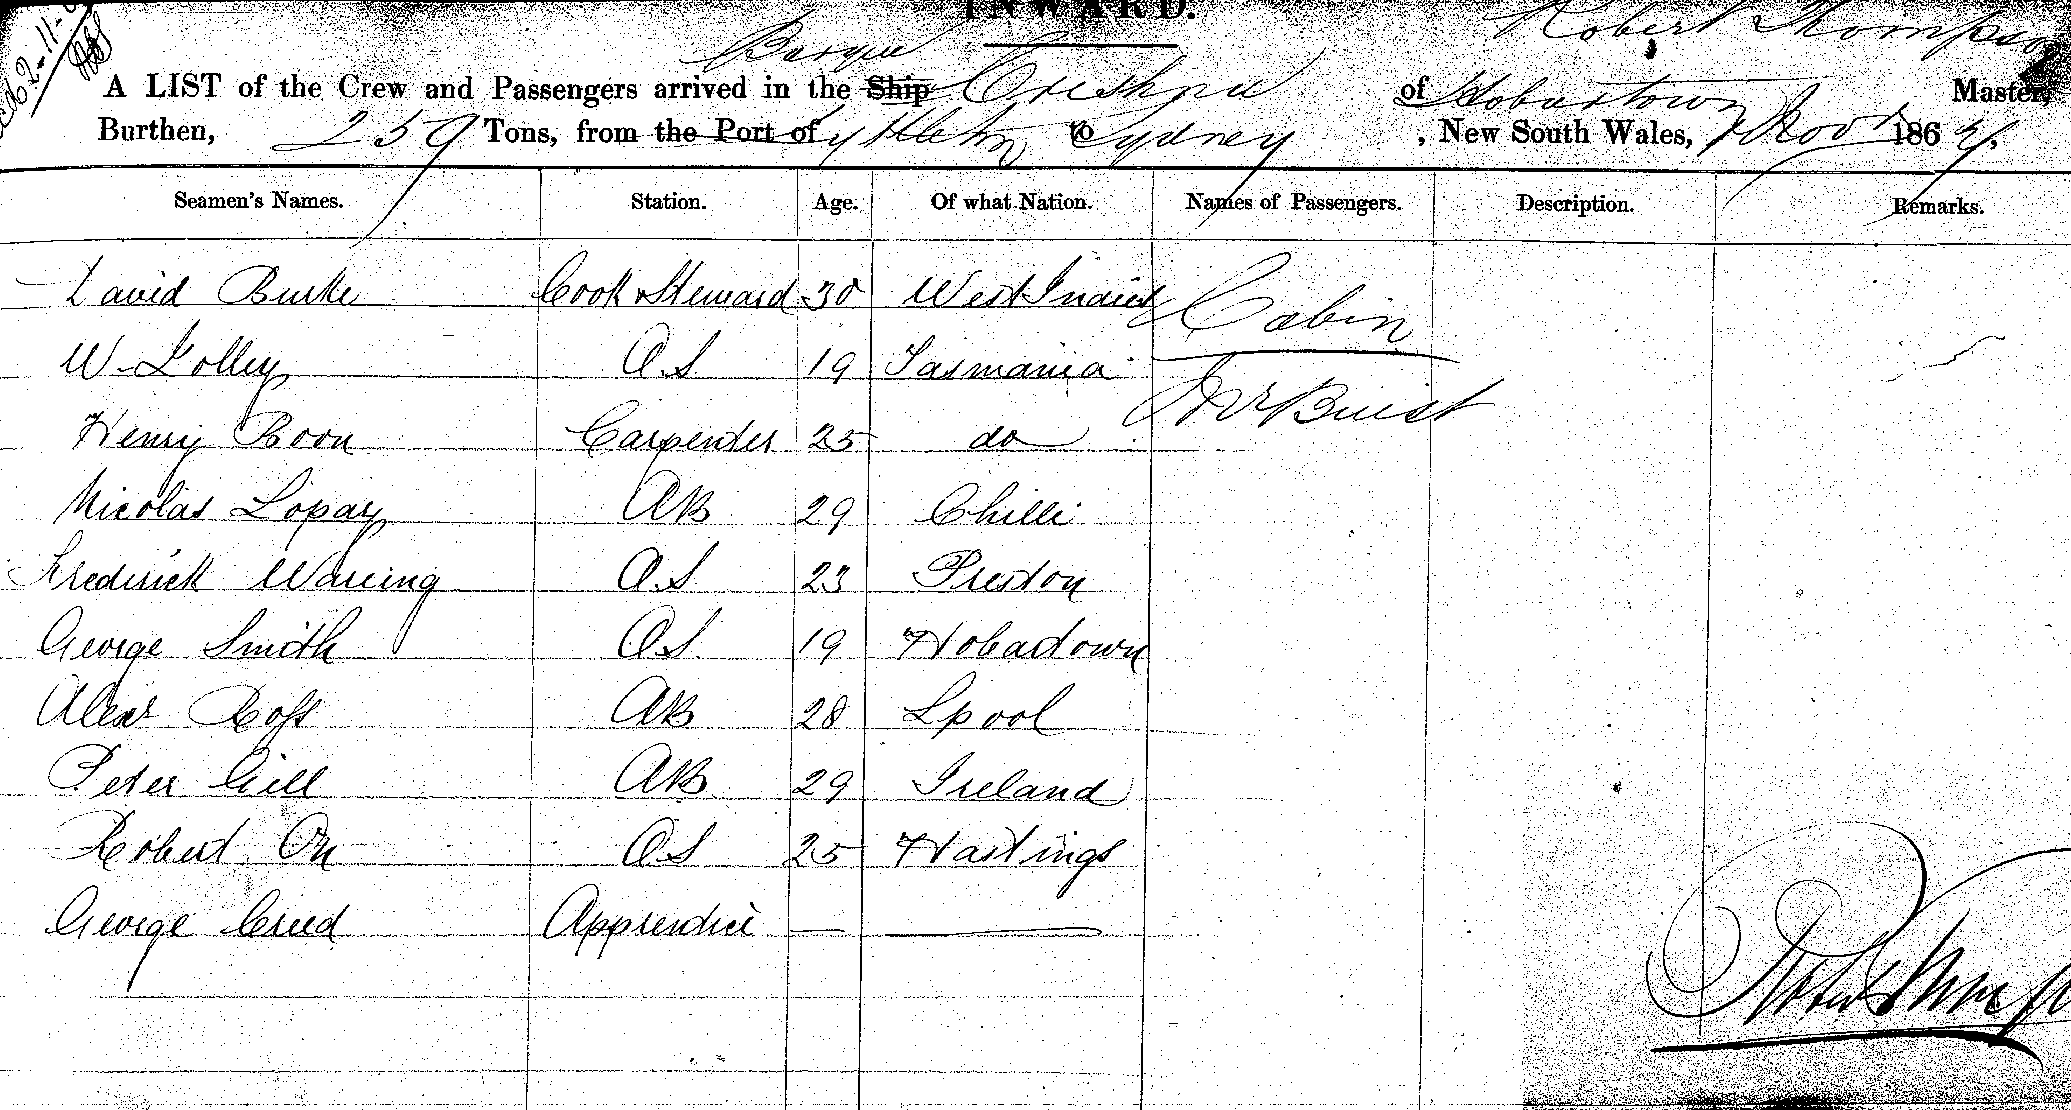 INWARD.
Robert Thompson
A LIST of the Crew and Passengers arrived in the Ship Barque of Hobartown Master,
Burthen, 259 Tons, from the Port of Lyttleton to Sydney, New South Wales, Novr 186
Seamen's Names. Station. Age. Of what Nation. Names of Passengers. Description. Remarks.
David Burke Cook & Steward 30 West Indies Cabin
W. Golley O.S 19 Tasmania
Henry Boon Carpenter 25 do Mr Buist
Nicolas Lopay AB 29 Chilli
Fredirick Wareing O.S 23 Preston
George Smith O.S. 19 Hobartown
Alexr Ross AB 28 Lpool
Peter Gill AB 29 Ireland
Robert Orr O.S 25 Hastings
George Creed Apprentice — —